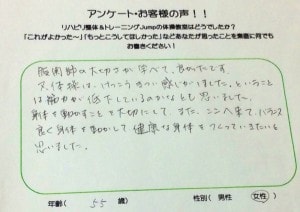 アンケート・お客様の声！！
リハビリ整体&トレーニングJumpの体操教室はどうでしたか？
「これがよかった〜」「もっとこうしてほしかった」などあなたが思ったことを素直に何でも
お書きください！
股関節の大切さが学べて、良かったです
又、体操は、けっこうきつい感じがしました。ということ
は筋力が低下しているのかなとも思いました。
身体を動かすことを大切にして、また、ここへ来て、バランス
良く身体を動かして健康な身体をつくっていきたいと
思いました。
年齢（ 55 歳） 性別（ 男性 女性 ）